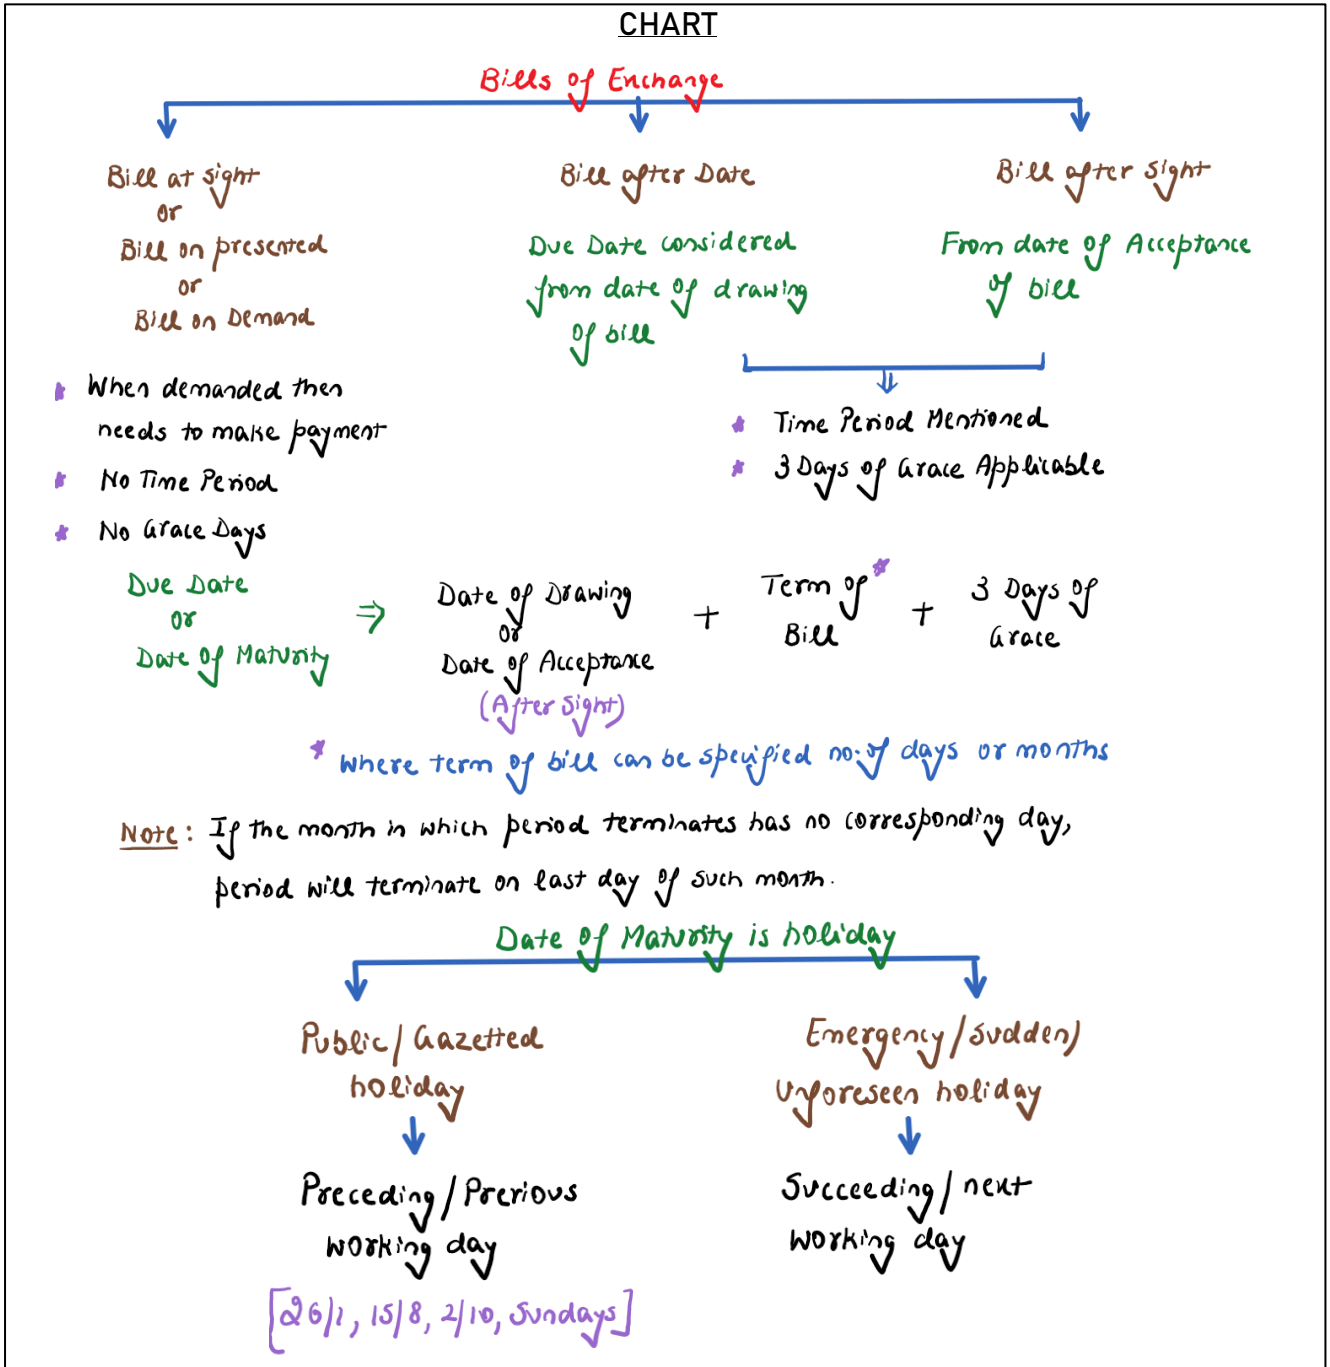 CHART
Bills of Exchange
Bill at sight
or
Bill on presented
or
Bill on Demand
Bill after Date
Due Date considered
from date of drawing
of bill
Bill after Sight
From date of Acceptance
of bill
* When demanded then
needs to make payment
* No Time Period
* No Grace Days
* Time Period Mentioned
* 3 Days of Grace Applicable
Due Date
or
Date of Maturity
⇒
Date of Drawing
or
Date of Acceptance
(After Sight)
+
Term of *
Bill
+
3 Days of
Grace
* Where term of bill can be specified no. of days or months
Note : If the month in which period terminates has no corresponding day,
period will terminate on last day of such month.
Date of Maturity is holiday
Public / Gazetted
holiday
Preceding / Previous
working day
[26/1, 15/8, 2/10, Sundays]
Emergency / Sudden /
Unforeseen holiday
Succeeding / next
working day